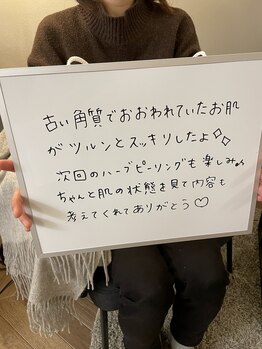 古い角質でおおわれていたお肌
がツルンとスッキリしたよ✧✧
次回のハーブピーリングも楽しみ♪
ちゃんと肌の状態を見て内容も
考えてくれてありがとう♡